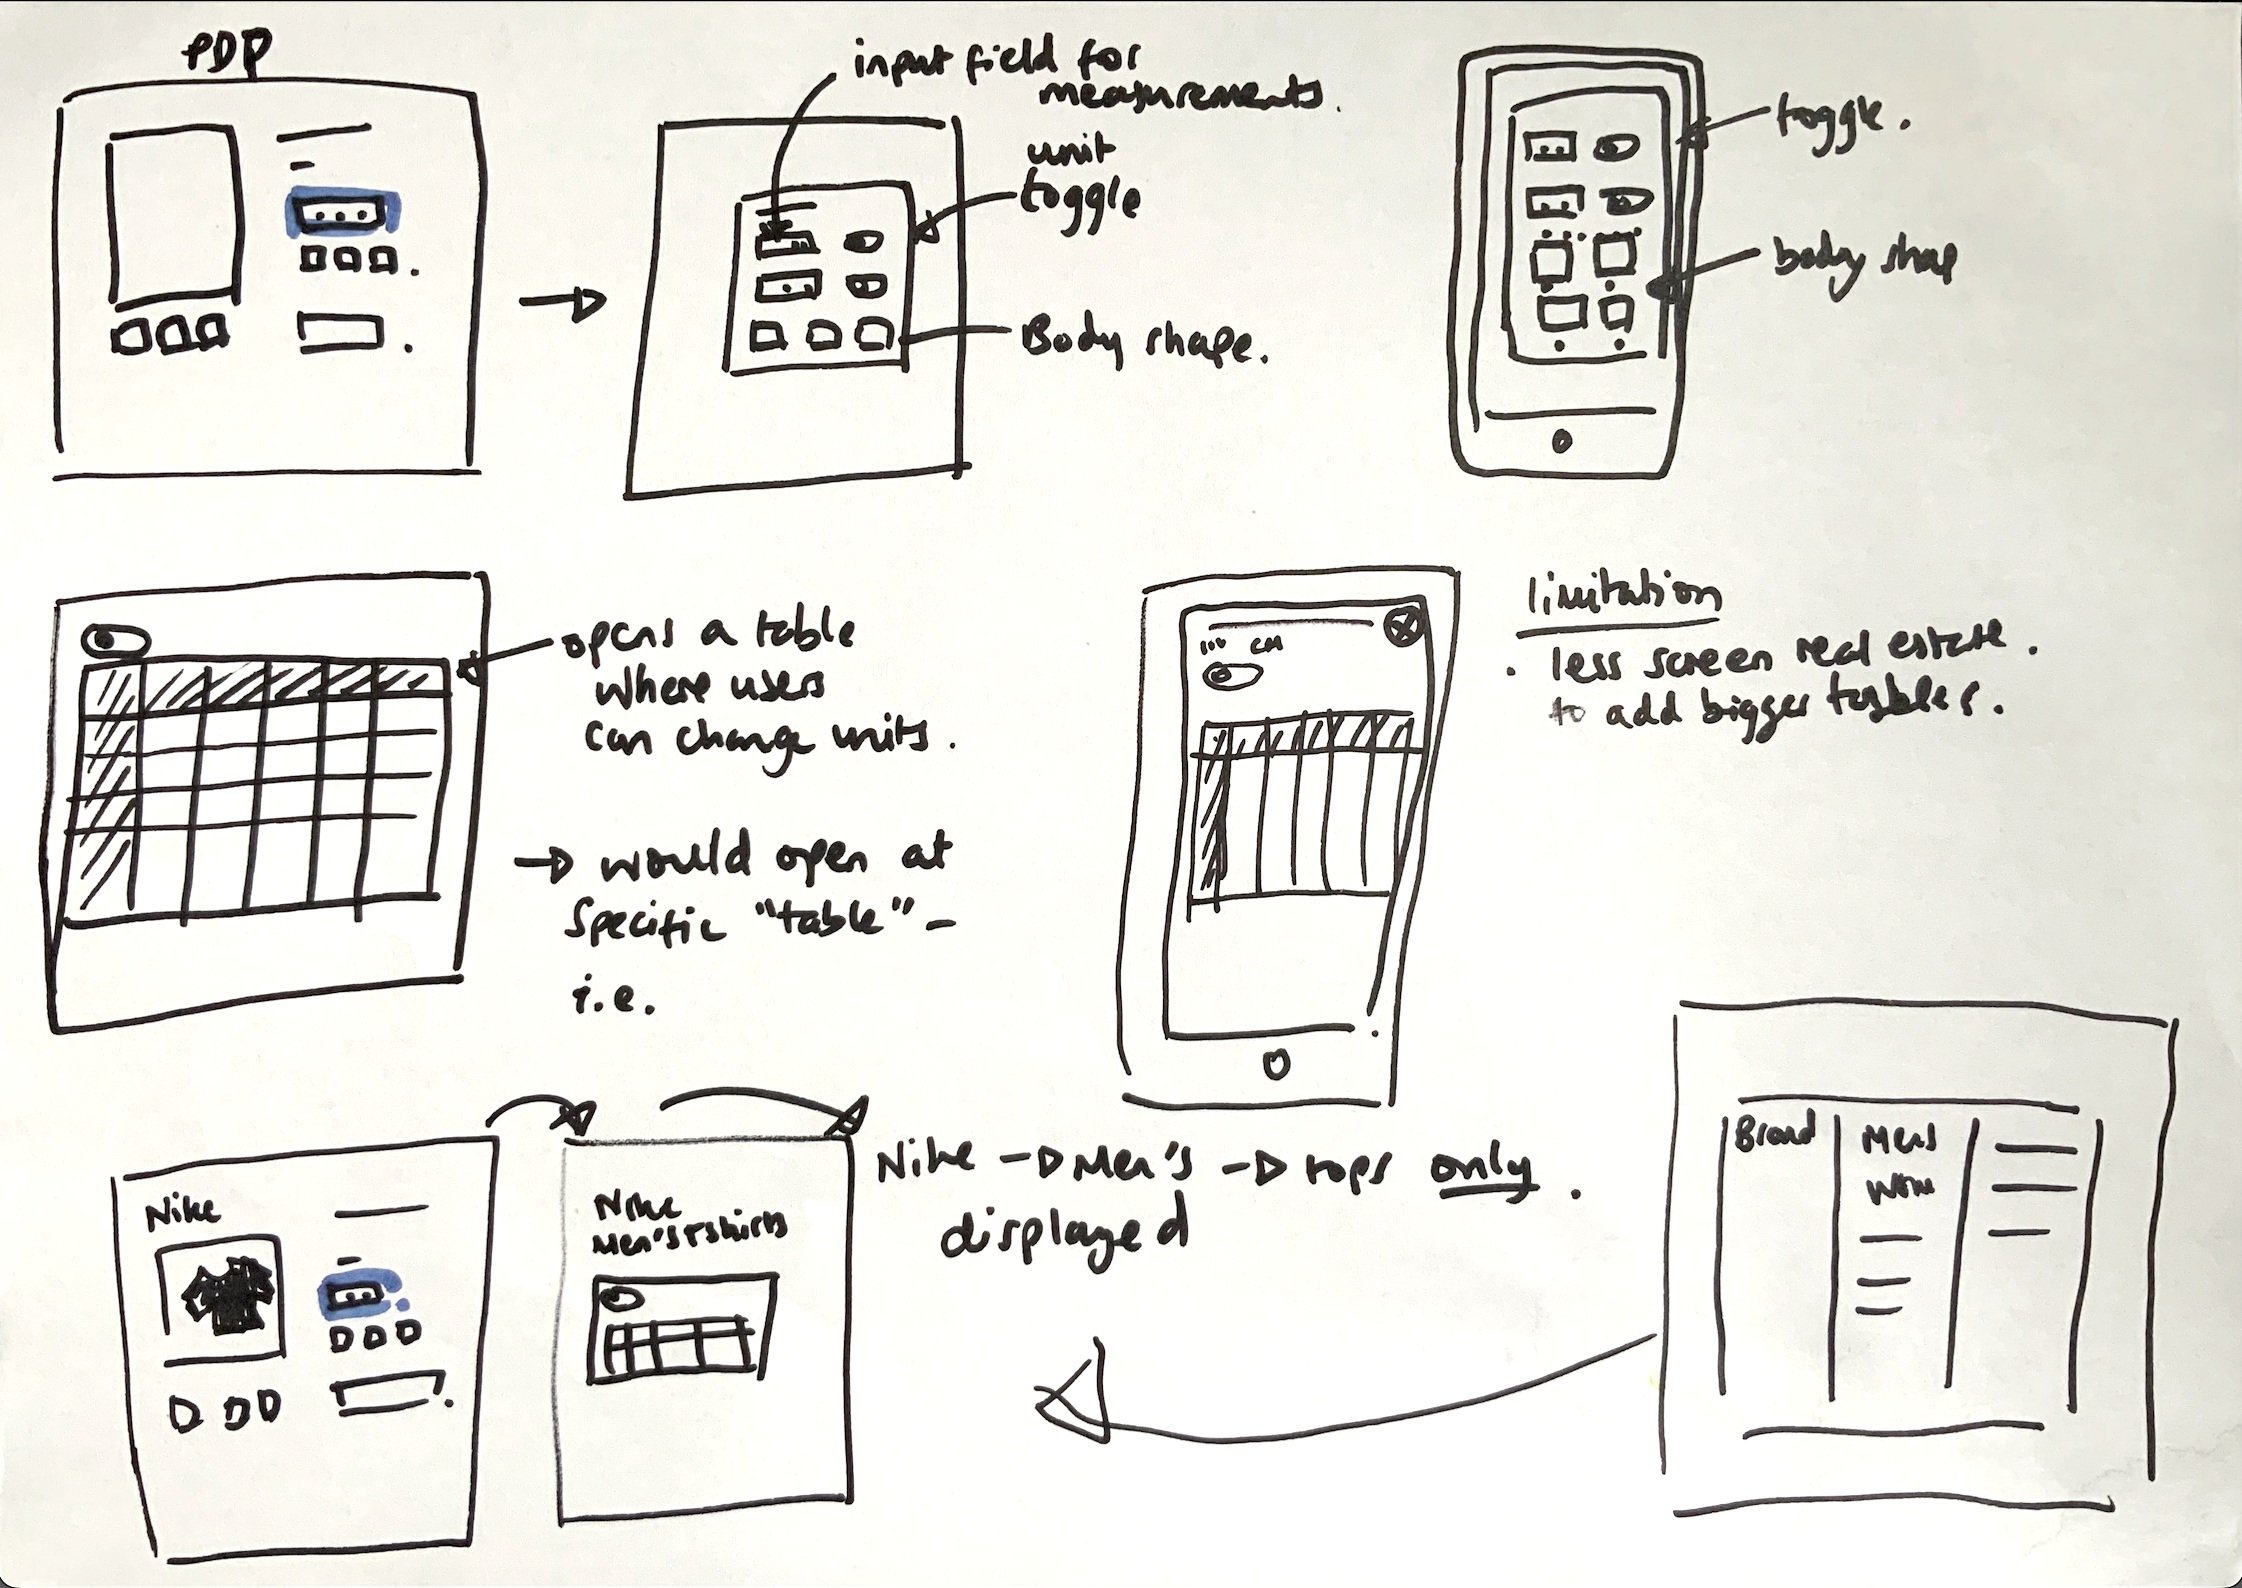 PDP
input field for
measurements.
unit
toggle
Body shape.
toggle.
body shap
opens a table
where users
can change units.
→ would open at
specific "table" -
i.e.
CM
limitation
. less screen real estate.
to add bigger tables.
Nike
Nike
Men's Tshirts
Nike → Men's → tops only.
displayed
Brand
Mens
Wom